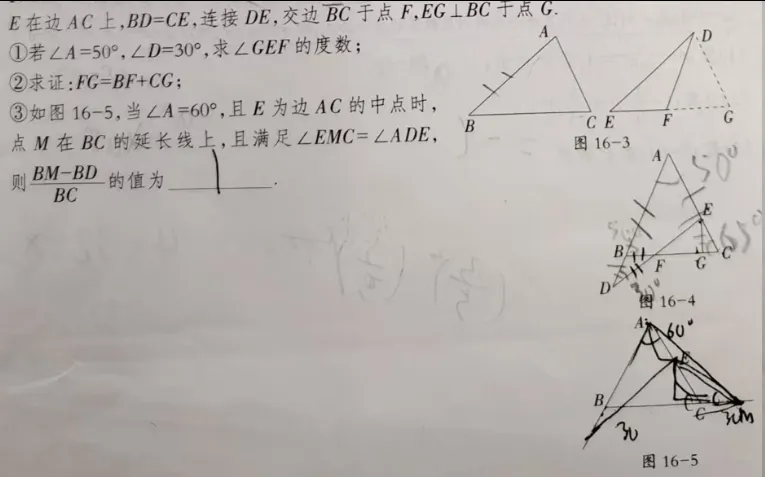 E在边AC上,BD=CE,连接DE,交边BC于点F,EG⊥BC于点G.
①若∠A=50°,∠D=30°,求∠GEF的度数;
②求证:FG=BF+CG;
③如图16-5,当∠A=60°,且E为边AC的中点时,
点M在BC的延长线上,且满足∠EMC=∠ADE,
则 BM-BD/BC 的值为 1 .
A
D
B
C
E
F
G
图16-3
A
50°
E
65°
B
F
G
C
D
30°
图16-4
A
60°
E
B
C
30
30M
图16-5